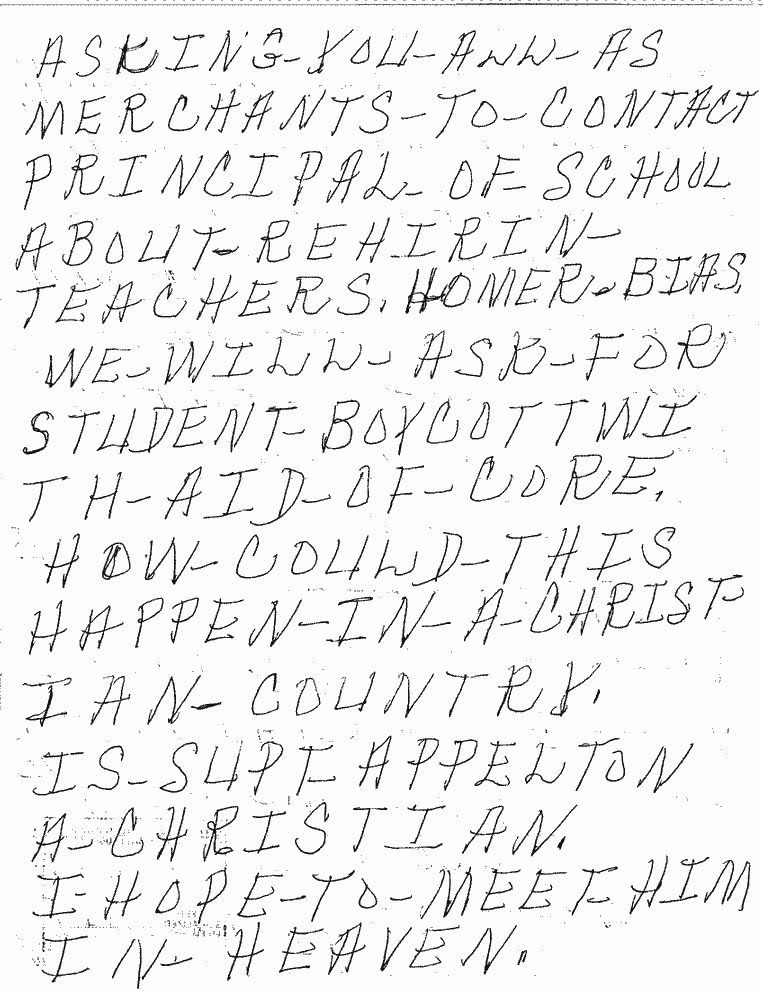 ASKING-YOU-ALL-AS
MERCHANTS-TO-CONTACT
PRINCIPAL-OF-SCHOOL
ABOUT-REHIRIN-
TEACHERS. HOMER-BIAS.
WE-WILL-ASK-FOR
STUDENT-BOYCOTTWI
TH-AID-OF-CORE.
HOW-COULD-THIS
HAPPEN-IN-A-CHRIST-
IAN-COUNTRY.
IS-SUPT-APPELTON
A-CHRISTIAN.
I-HOPE-TO-MEET-HIM
IN-HEAVEN.